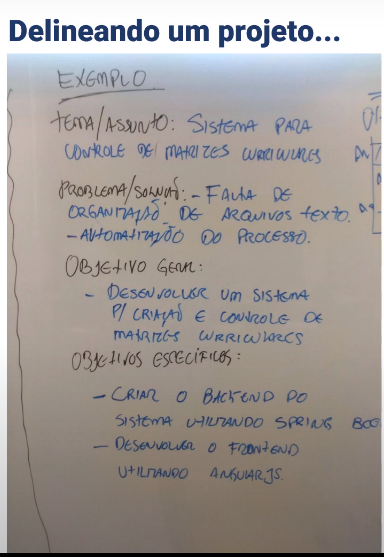 Delineando um projeto...
EXEMPLO
TEMA/ASSUNTO: SISTEMA PARA
CONTROLE DE MATRIZES CURRICULARES
PROBLEMA/SOLUÇÃO: - FALTA DE
ORGANIZAÇÃO DE ARQUIVOS TEXTO.
- AUTOMATIZAÇÃO DO PROCESSO.
OBJETIVO GERAL:
- DESENVOLVER UM SISTEMA
P/ CRIAÇÃO E CONTROLE DE
MATRIZES CURRICULARES
OBJETIVOS ESPECÍFICOS:
- CRIAR O BACKEND DO
SISTEMA UTILIZANDO SPRING BOO
- DESENVOLVER O FRONTEND
UTILIZANDO ANGULARJS.